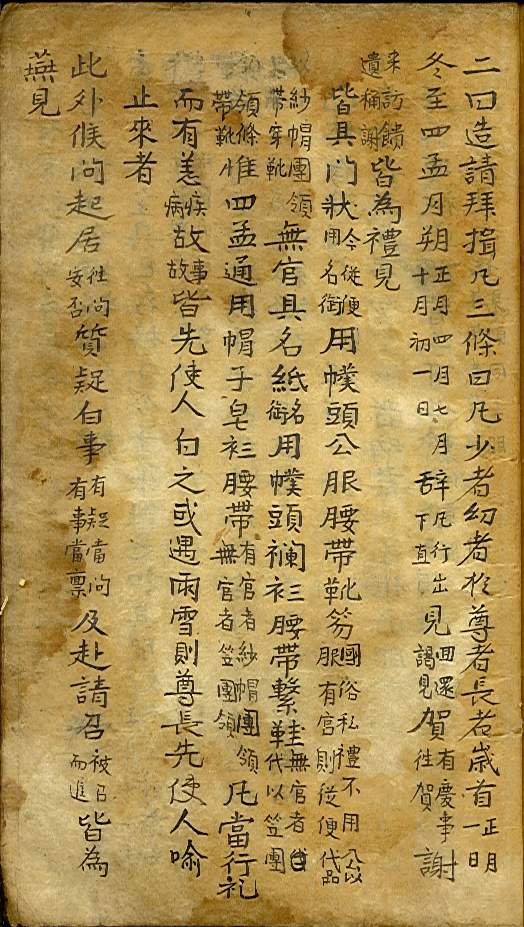 二曰造請拜揖凡三條曰凡少者幼者於尊者長者歲首正月一日
冬至四孟月朔正月四月七月十月初一日辭凡行出下直見回還謁見賀有慶事往賀謝
來訪饋遺稱謝皆為禮見
皆具門狀今從便用名銜用幞頭公服腰帶靴笏國俗私禮不用公服有官則從便代以品
紗帽團領帶穿靴無官具名紙名銜用幞頭襴衫腰帶繫鞋無官者代以笠團
領絛帶靴惟四孟通用帽子皂衫腰帶有官者紗帽團領無官者笠團領凡當行礼
而有恙疾病故事故皆先使人白之或遇雨雪則尊長先使人喻
止來者
此外候問起居往問安否質疑白事有疑當問有事當稟及赴請召被召而進皆為
燕見